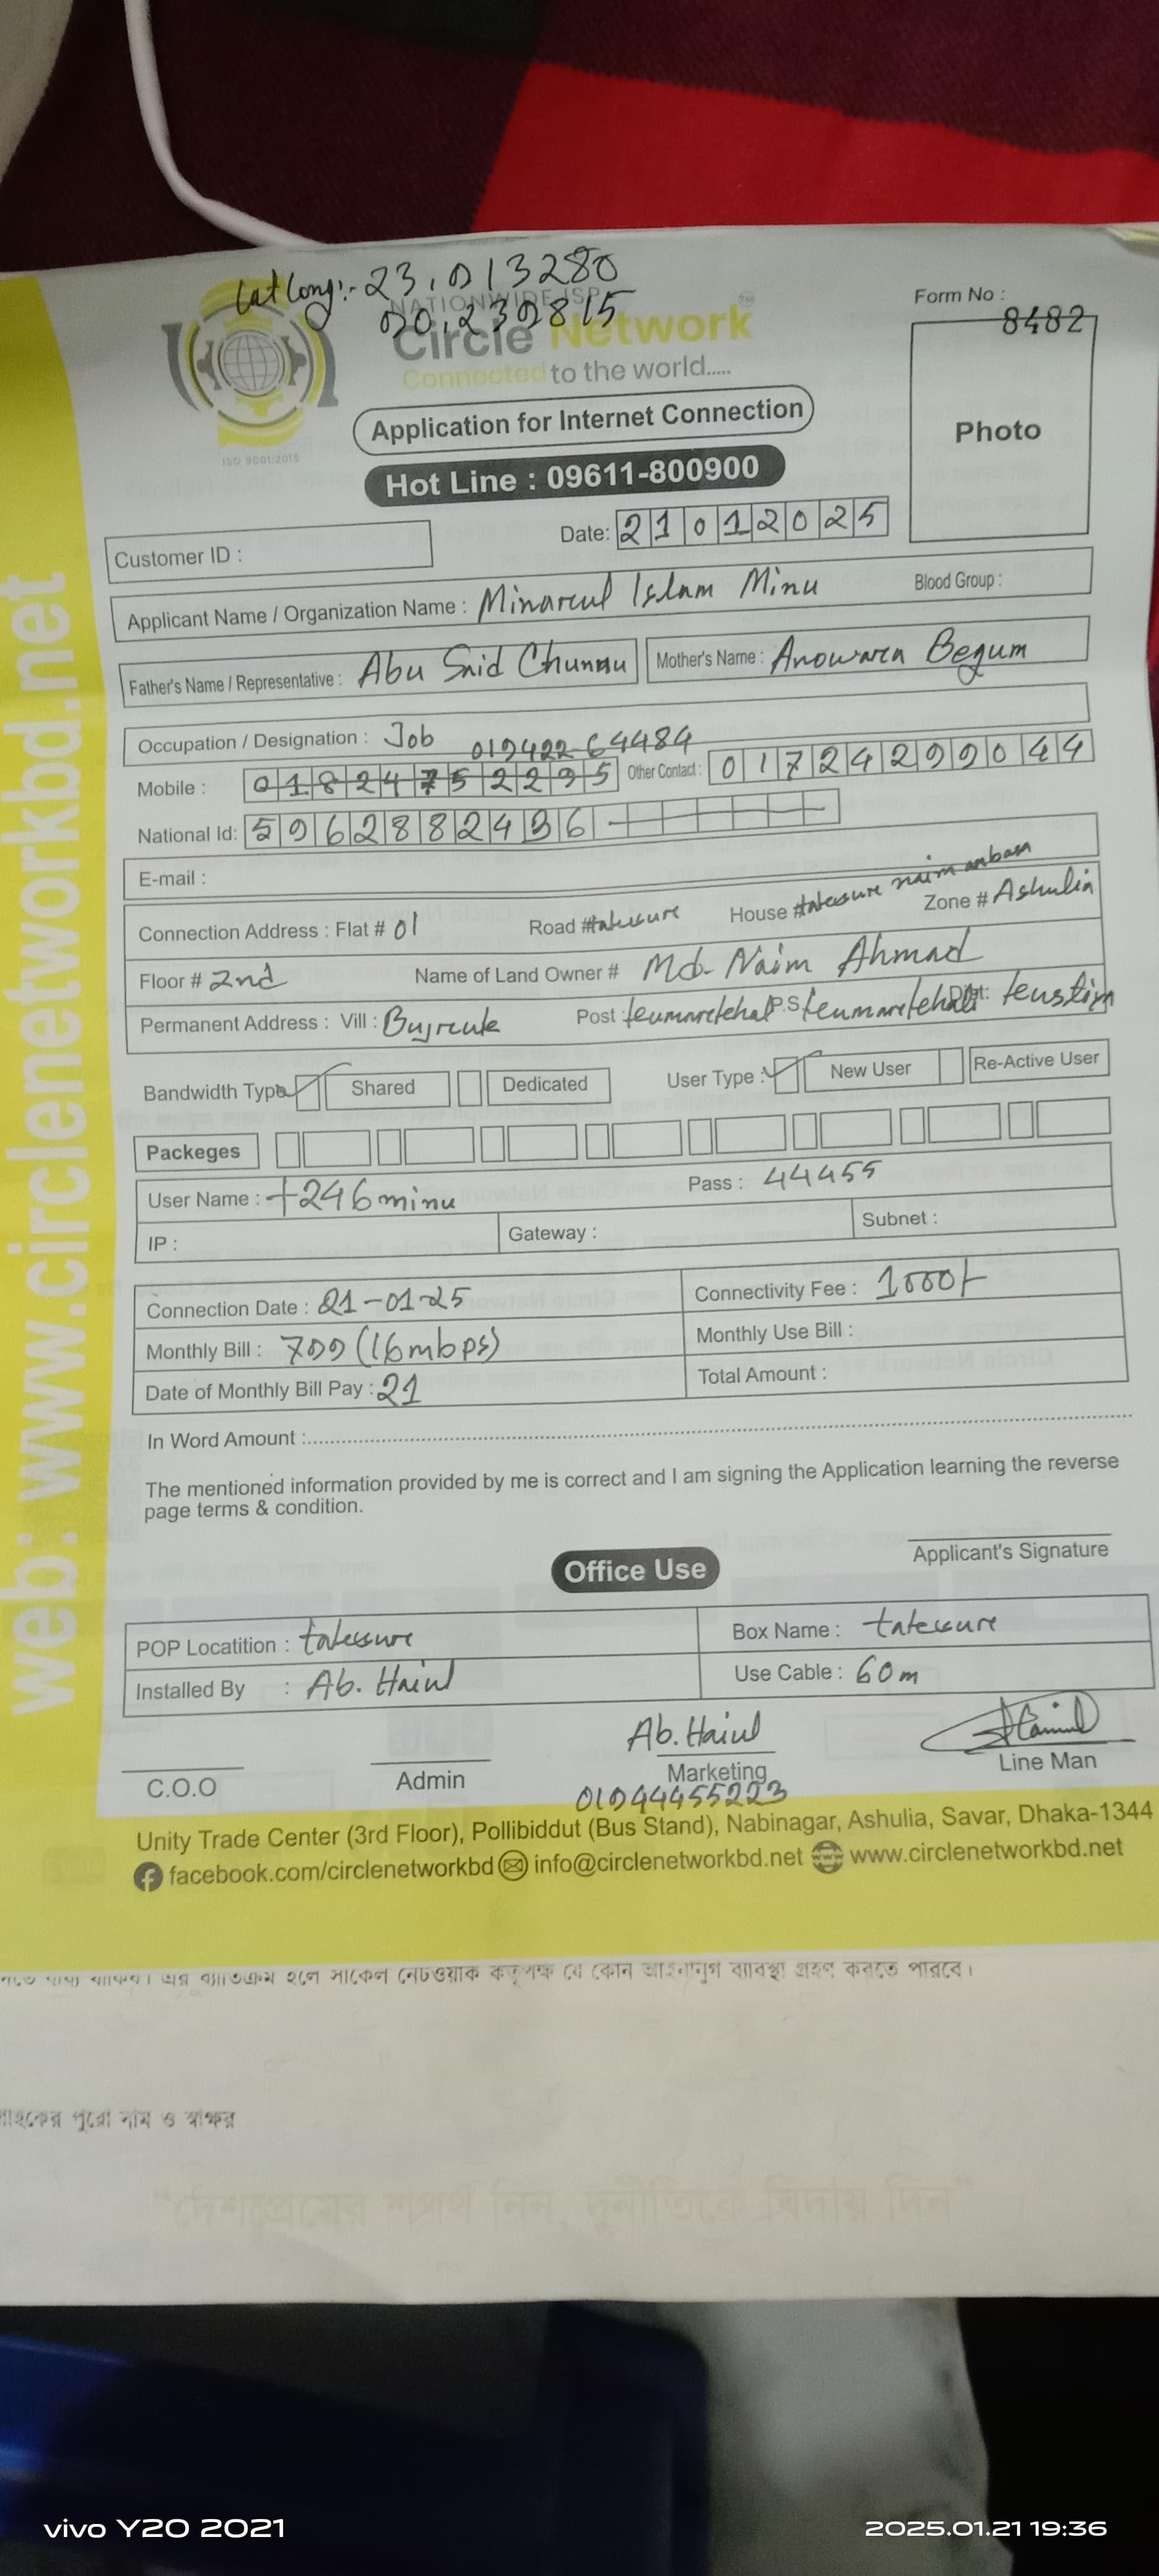 Lat Long:- 23.013280
90.239815
NATIONWIDE ISP
Circle Network
Connected to the world.....
ISO 9001:2015
Form No :
8482
Photo
Application for Internet Connection
Hot Line : 09611-800900
Customer ID :
Date: 21012025
Applicant Name / Organization Name : Minarul Islam Minu Blood Group :
Father's Name / Representative : Abu Said Chunnu Mother's Name : Anowara Begum
Occupation / Designation : Job
019422-64484
Mobile : 01824752295 Other Contact : 01724299044
National Id: 5962882436
E-mail :
Connection Address : Flat # 01 Road # House # naim Zone # Ashulia
Floor # 2nd Name of Land Owner # Md- Naim Ahmad
Permanent Address : Vill : Post : P.S Dist:
Bandwidth Type Shared Dedicated User Type : New User Re-Active User
Packeges
User Name : t246minu Pass : 44455
IP : Gateway : Subnet :
Connection Date : 21-01-25 Connectivity Fee : 1000/-
Monthly Bill : 700 (16mbps) Monthly Use Bill :
Date of Monthly Bill Pay : 21 Total Amount :
In Word Amount :
The mentioned information provided by me is correct and I am signing the Application learning the reverse
page terms & condition.
Applicant's Signature
Office Use
POP Locatition : Box Name :
Installed By : Ab. Use Cable : 60m
Ab.
C.O.O Admin Marketing Line Man
01944455223
Unity Trade Center (3rd Floor), Pollibiddut (Bus Stand), Nabinagar, Ashulia, Savar, Dhaka-1344
facebook.com/circlenetworkbd info@circlenetworkbd.net www.circlenetworkbd.net
web: www.circlenetworkbd.net
হলে সার্কেল নেটওয়ার্ক কর্তৃপক্ষ যে কোন আইনানুগ ব্যবস্থা গ্রহণ করতে পারবে।
গ্রাহকের পুরো নাম ও স্বাক্ষর
“দেশপ্রেমের শপথ নিন, দুর্নীতিকে বিদায় দিন”
vivo Y20 2021
2025.01.21 19:36